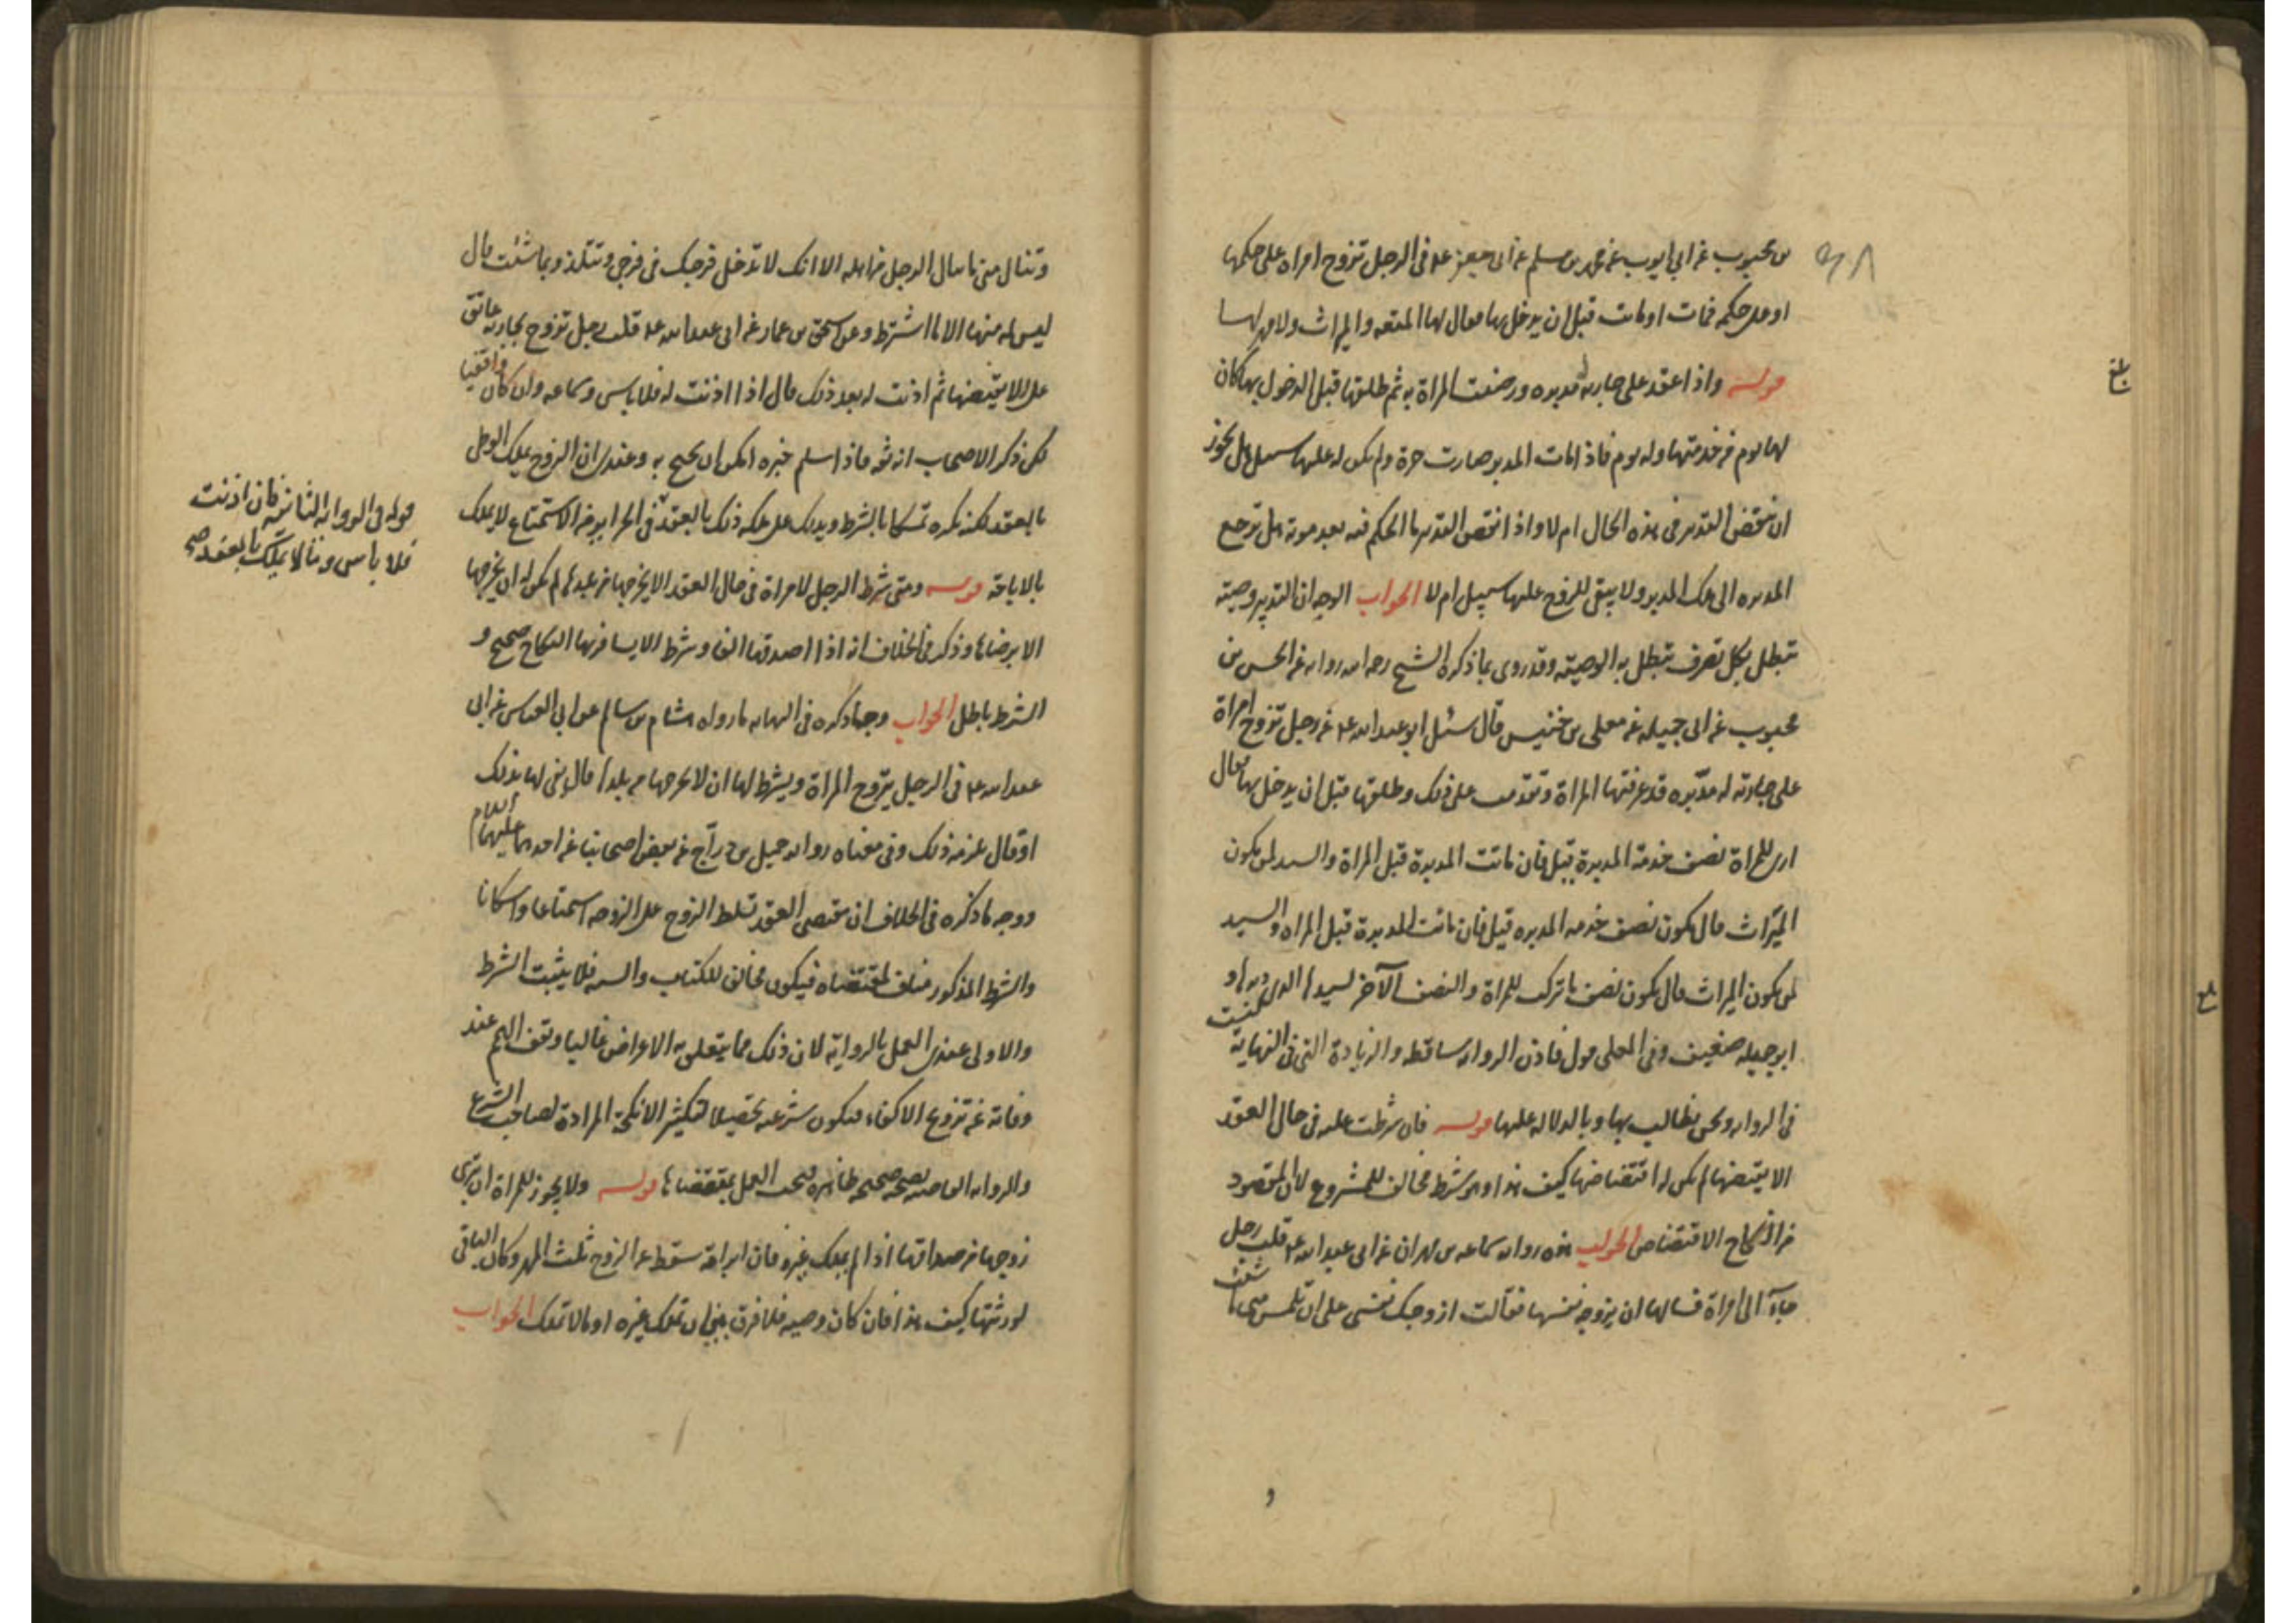 بن محبوب عن ابي ايوب عن محمد بن مسلم عن ابى جعفر ع في الرجل تزوج امراة على حكمها
او على حكمه فمات او ماتت قبل ان يدخل بها فقال لها المتعه والميراث ولا مهر لها
قوله واذا عقد على جارية مدبره ورضيت المراة به ثم طلقها قبل الدخول بها كان
لها يوم من خدمتها وله يوم فاذا مات المدبر صارت حرة ولم يكن له عليها سبيل هل يجوز
ان ينتقض التدبير في هذه الحال ام لا واذا انتقض التدبير ما الحكم فيه بعد موته هل ترجع
المدبره الى ملك المدبر ولا يبقى للزوج عليها سبيل ام لا الجواب الوجه ان التدبير وصية
تبطل بكل تصرف تبطل به الوصية وقد روى ما ذكره الشيخ رحمه الله رواية عن الحسن بن
محبوب عن ابى جميله عن معلى بن خنيس قال سئل ابو عبد الله ع عن رجل تزوج امراة
على جارية له مدبره قد عرفتها المراة وتقدمت على ذلك وطلقها قبل ان يدخل بها فقال
ارى للمراة نصف خدمة المدبرة قيل فان ماتت المدبرة قبل المراة والسيد لمن يكون
الميراث قال يكون نصف خدمه المدبره قيل فان ماتت المدبرة قبل المراه والسيد
لمن يكون الميراث قال يكون نصف ما تركت للمراة والنصف الآخر لسيدها الذى دبرها و
ابو جميله ضعيف وفى المعلى قول فاذن الرواية ساقطه والزيادة التى فى النهاية ليست
فى الرواية ونحن نطالب بها وبالدلالة عليها قوله فان شرطت عليه فى حال العقد
الا يقتضها لم يكن له اقتضاضها كيف هذا وهو شرط مخالف للمشروع لان المقصود
من النكاح الاقتضاض الجواب هذه رواية سماعه بن مهران عن ابى عبد الله ع قلت رجل
جاء الى امراة فسالها ان يزوجه نفسها فقالت ازوجك نفسى على ان تلتمس منى ما شئت
وتنال منى ما ينال الرجل من اهله الا انك لا تدخل فرجك فى فرجى وتتلذذ بما شئت قال
ليس له منها الا ما اشترط وعن اسحق بن عمار عن ابى عبد الله ع قلت رجل تزوج بجارية عاتق
على الا يقتضها ثم اذنت له بعد ذلك قال اذا اذنت له فلا باس وسماعه وان كان واقفيا
لكن ذكر الاصحاب انه ثقه فاذا سلم خبره امكن ان يحتج به وعندى ان الزوج يملك الوطى
بالعقد لكنه يكره تمسكا بالشرط ويدلك على ملكه ذلك بالعقد فى الحراير فى الاستمتاع لا يملك
بالاباحة قوله ومتى شرط الرجل لامراة فى حال العقد الا يخرجها من بلدها لم يكن له ان يخرجها
الا برضاها وذكر فى الخلاف انه اذا اصدقها الفا وشرط الا يسافر بها النكاح صحيح و
الشرط باطل الجواب وجه ما ذكره فى النهايه ما رواه هشام بن سالم عن ابى العباس عن ابى
عبد الله ع فى الرجل يتزوج المراة ويشترط لها ان لا يخرجها من بلدها قال يفى لها بذلك
او قال يلزمه ذلك وفى معناه رواية جميل بن دراج عن بعض اصحابنا عن احدهما عليهما السلام
ووجه ما ذكره فى الخلاف ان مقتضى العقد تسلط الزوج على الزوجه استمتاعا واسكانا
والشرط المذكور مناف لمقتضاه فيكون مخالف للكتاب والسنه فلا يثبت الشرط
والاولى عندى العمل بالرواية لان ذلك مما يتعلق به الاغراض غالبا وتقف الهمم عند
وفاته عن تزويج الاكفاء فيكون شرعيه تحصيلا لتكثير الانكحة المرادة لصاحب الشرع
والرواية الصحيحه ظاهره فيجب العمل بمقتضاها قوله ولا يجوز للمراة ان تبرى
زوجها من صداقها اذا لم يملك غيره فان ابراته سقط عن الزوج ثلث المهر وكان الباقى
لورثتها كيف هذا فان كان وصيه فلا فرق بين ان تملك غيره او ما لا تملك الجواب
قوله فى الرواية الثانيه فان اذنت
فلا باس وما لا يملك بالعقد صح